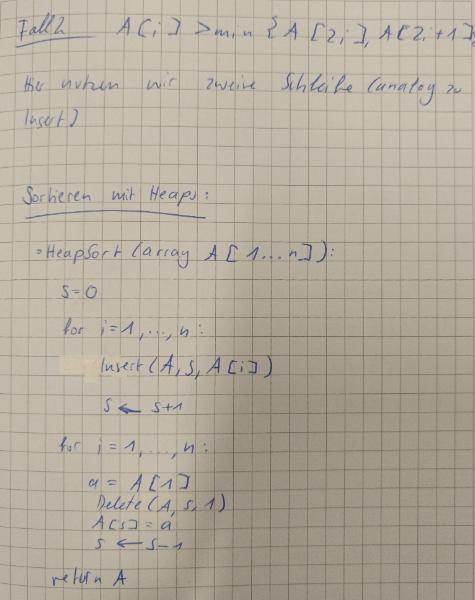 Fall 2 A[i] > min { A[2i], A[2i+1]
Hier nutzen wir zweite Schleife (analog zu
Insert)
Sortieren mit Heaps:
• HeapSort (array A[1...n]):
S=0
for i=1,...,n:
Insert(A, S, A[i])
S ← S+1
for i=1,...,n:
a = A[1]
Delete(A, S, 1)
A[S] = a
S ← S-1
return A